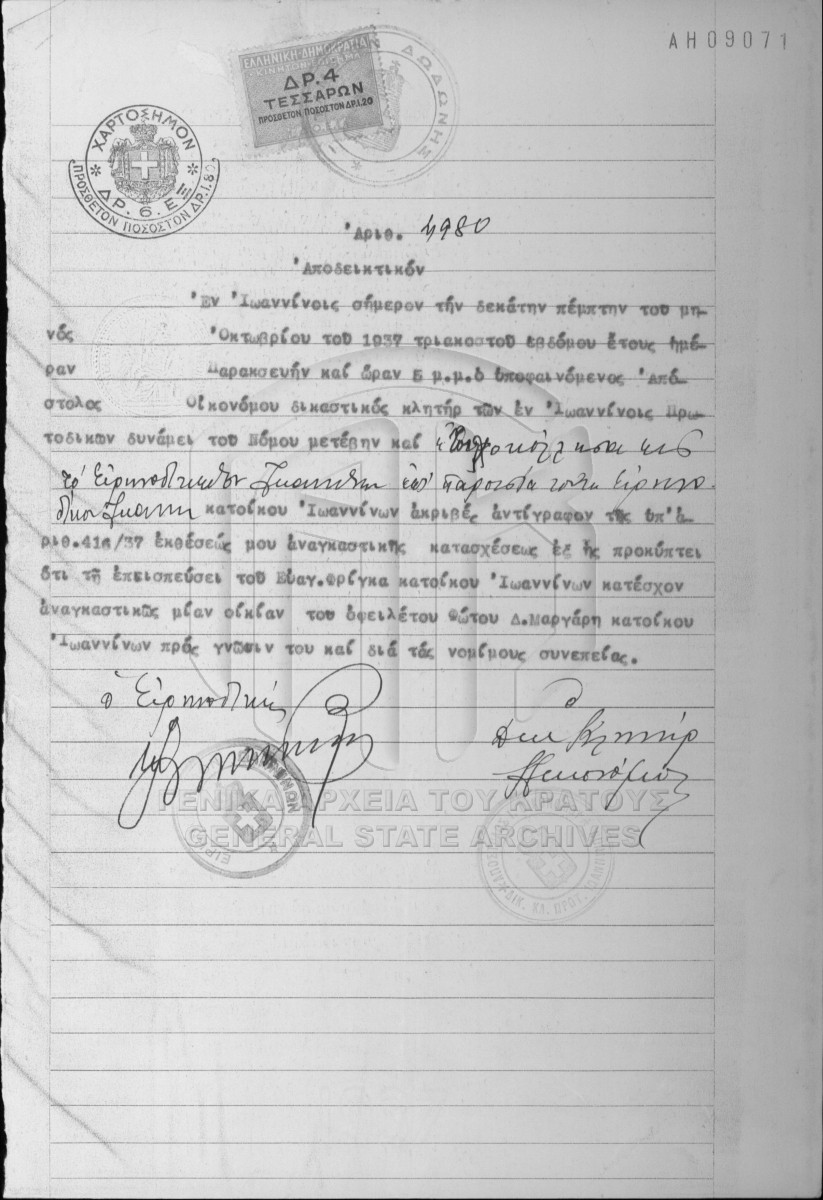 ΑΗ09071
ΕΛΛΗΝΙΚΗ ΔΗΜΟΚΡΑΤΙΑ
ΔΡ. 4
ΤΕΣΣΑΡΩΝ
ΠΡΟΣΘΕΤΟΝ ΠΟΣΟΣΤΟΝ ΔΡ.1.20
ΔΩΔΩΝΗΣ
ΧΑΡΤΟΣΗΜΟΝ
ΔΡ. 6. ΕΞ
ΠΡΟΣΘΕΤΟΝ ΠΟΣΟΣΤΟΝ ΔΡ.1.80
Ἀριθ. 4980
Ἀποδεικτικόν
Ἐν Ἰωαννίνοις σήμερον τήν δεκάτην πέμπτην του μη-
νός Ὀκτωβρίου τοῦ 1937 τριακοστοῦ ἑβδόμου ἔτους ἡμέ-
ραν Παρακσευήν καί ὥραν 5 μ.μ.ὁ ὑποφαινόμενος Ἀπό-
στολος Οἰκονόμου δικαστικός κλητήρ τῶν ἐν Ἰωαννίνοις Πρω-
τοδικων δυνάμει τοῦ Νόμου μετέβην καί
τό Εἰρηνοδικεῖον παρουσία τοῦ Εἰρηνο-
δίκου κατοίκου Ἰωαννίνων ἀκριβές ἀντίγραφον τῆς ὑπ'ἀ-
ριθ.416/37 ἐκθέσεώς μου ἀναγκαστικῆς κατασχέσεως ἐξ ἧς προκύπτει
ὅτι τῇ ἐπεισπεύσει τοῦ Εὐαγ.Φρίγκα κατοίκου Ἰωαννίνων κατέσχον
ἀναγκαστικῶς μίαν οἰκίαν του ὀφειλέτου Φώτου Δ.Μαργάρη κατοίκου
Ἰωαννίνων πρός γνῶσιν του καί διά τάς νομίμους συνεπείας.
ὁ Εἰρηνοδίκης
ὁ
Δικ Κλητήρ
ΓΕΝΙΚΑ ΑΡΧΕΙΑ ΤΟΥ ΚΡΑΤΟΥΣ
GENERAL STATE ARCHIVES